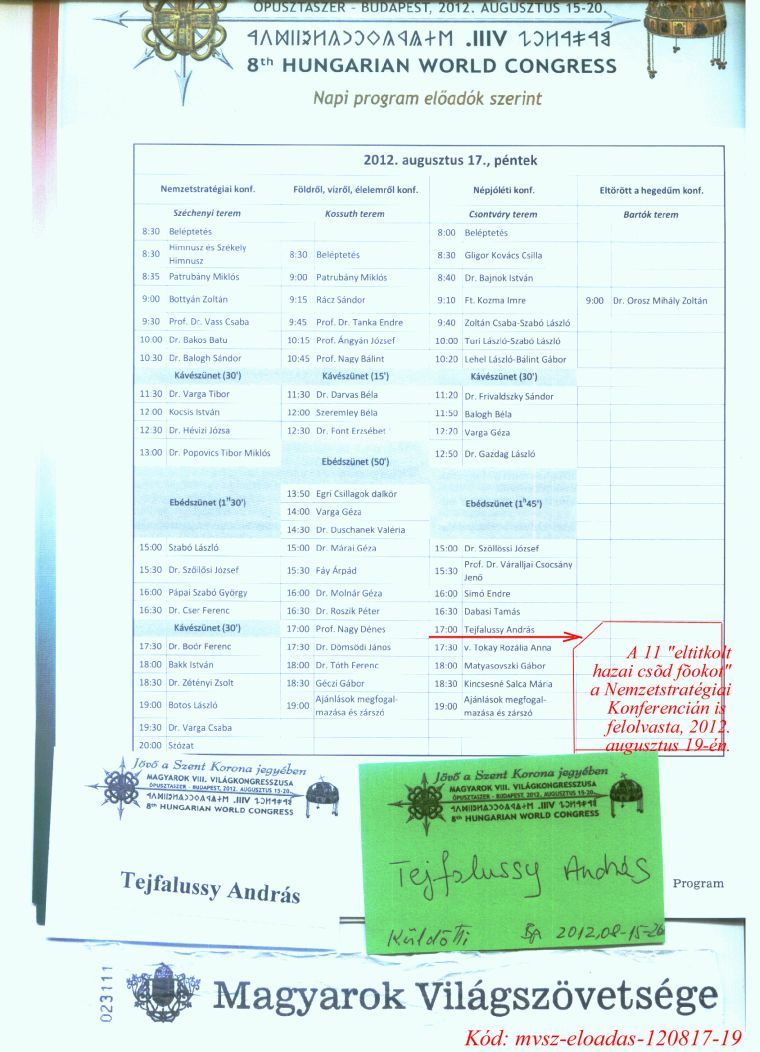 ÓPUSZTASZER - BUDAPEST, 2012. AUGUSZTUS 15-20.
8th HUNGARIAN WORLD CONGRESS
Napi program előadók szerint
2012. augusztus 17., péntek
Nemzetstratégiai konf. Földről, vízről, élelemről konf. Népjóléti konf. Eltörött a hegedűm konf.
Széchenyi terem Kossuth terem Csontváry terem Bartók terem
8:30 Beléptetés 8:00 Beléptetés
8:30 Himnusz és Székely Himnusz 8:30 Beléptetés 8:30 Gligor Kovács Csilla
8:35 Patrubány Miklós 9:00 Patrubány Miklós 8:40 Dr. Bajnok István
9:00 Bottyán Zoltán 9:15 Rácz Sándor 9:10 Ft. Kozma Imre 9:00 Dr. Orosz Mihály Zoltán
9:30 Prof. Dr. Vass Csaba 9:45 Prof. Dr. Tanka Endre 9:40 Zoltán Csaba-Szabó László
10:00 Dr. Bakos Batu 10:15 Prof. Ángyán József 10:00 Turi László-Szabó László
10:30 Dr. Balogh Sándor 10:45 Prof. Nagy Bálint 10:20 Lehel László-Bálint Gábor
Kávészünet (30') Kávészünet (15') Kávészünet (30')
11:30 Dr. Varga Tibor 11:30 Dr. Darvas Béla 11:20 Dr. Frivaldszky Sándor
12:00 Kocsis István 12:00 Szeremley Béla 11:50 Balogh Béla
12:30 Dr. Hévizi Józsa 12:30 Dr. Font Erzsébet 12:20 Varga Géza
13:00 Dr. Popovics Tibor Miklós Ebédszünet (50') 12:50 Dr. Gazdag László
Ebédszünet (1h30') 13:50 Egri Csillagok dalkör Ebédszünet (1h45')
14:00 Varga Géza
14:30 Dr. Duschanek Valéria
15:00 Szabó László 15:00 Dr. Márai Géza 15:00 Dr. Szöllössi József
15:30 Dr. Szőllősi József 15:30 Fáy Árpád 15:30 Prof. Dr. Váralljai Csocsány Jenő
16:00 Pápai Szabó György 16:00 Dr. Molnár Géza 16:00 Simó Endre
16:30 Dr. Cser Ferenc 16:30 Dr. Roszík Péter 16:30 Dabasi Tamás
Kávészünet (30') 17:00 Prof. Nagy Dénes 17:00 Tejfalussy András
17:30 Dr. Boór Ferenc 17:30 Dr. Dömsödi János 17:30 v. Tokay Rozália Anna
18:00 Bakk István 18:00 Dr. Tóth Ferenc 18:00 Matyasovszki Gábor
18:30 Dr. Zétényi Zsolt 18:30 Géczi Gábor 18:30 Kincsesné Salca Mária
19:00 Botos László 19:00 Ajánlások megfogalmazása és zárszó 19:00 Ajánlások megfogalmazása és zárszó
19:30 Dr. Varga Csaba
20:00 Szózat
A 11 "eltitkolt
hazai csõd fõokot"
a Nemzetstratégiai
Konferencián is
felolvasta, 2012.
augusztus 19-én.
Jövő a Szent Korona jegyében
MAGYAROK VIII. VILÁGKONGRESSZUSA
ÓPUSZTASZER - BUDAPEST, 2012. AUGUSZTUS 15-20.
8th HUNGARIAN WORLD CONGRESS
Tejfalussy András
Jövő a Szent Korona jegyében
MAGYAROK VIII. VILÁGKONGRESSZUSA
ÓPUSZTASZER - BUDAPEST, 2012. AUGUSZTUS 15-20.
8th HUNGARIAN WORLD CONGRESS
Tejfalussy András
Küldötti 2012,08-15-20
Program
023111
Magyarok Világszövetsége
Kód: mvsz-eloadas-120817-19